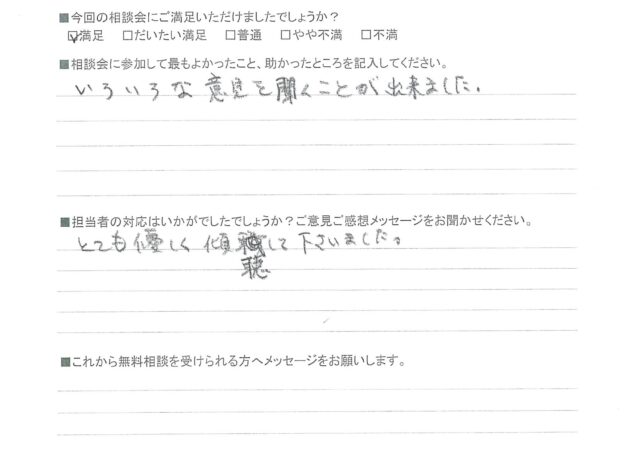 ■今回の相談会にご満足いただけましたでしょうか？
☑満足 □だいたい満足 □普通 □やや不満 □不満
■相談会に参加して最もよかったこと、助かったところを記入してください。
いろいろな意見を聞くことが出来ました。
■担当者の対応はいかがでしたでしょうか？ご意見ご感想メッセージをお聞かせください。
とても優しく傾して下さいました。
聴
■これから無料相談を受けられる方へメッセージをお願いします。